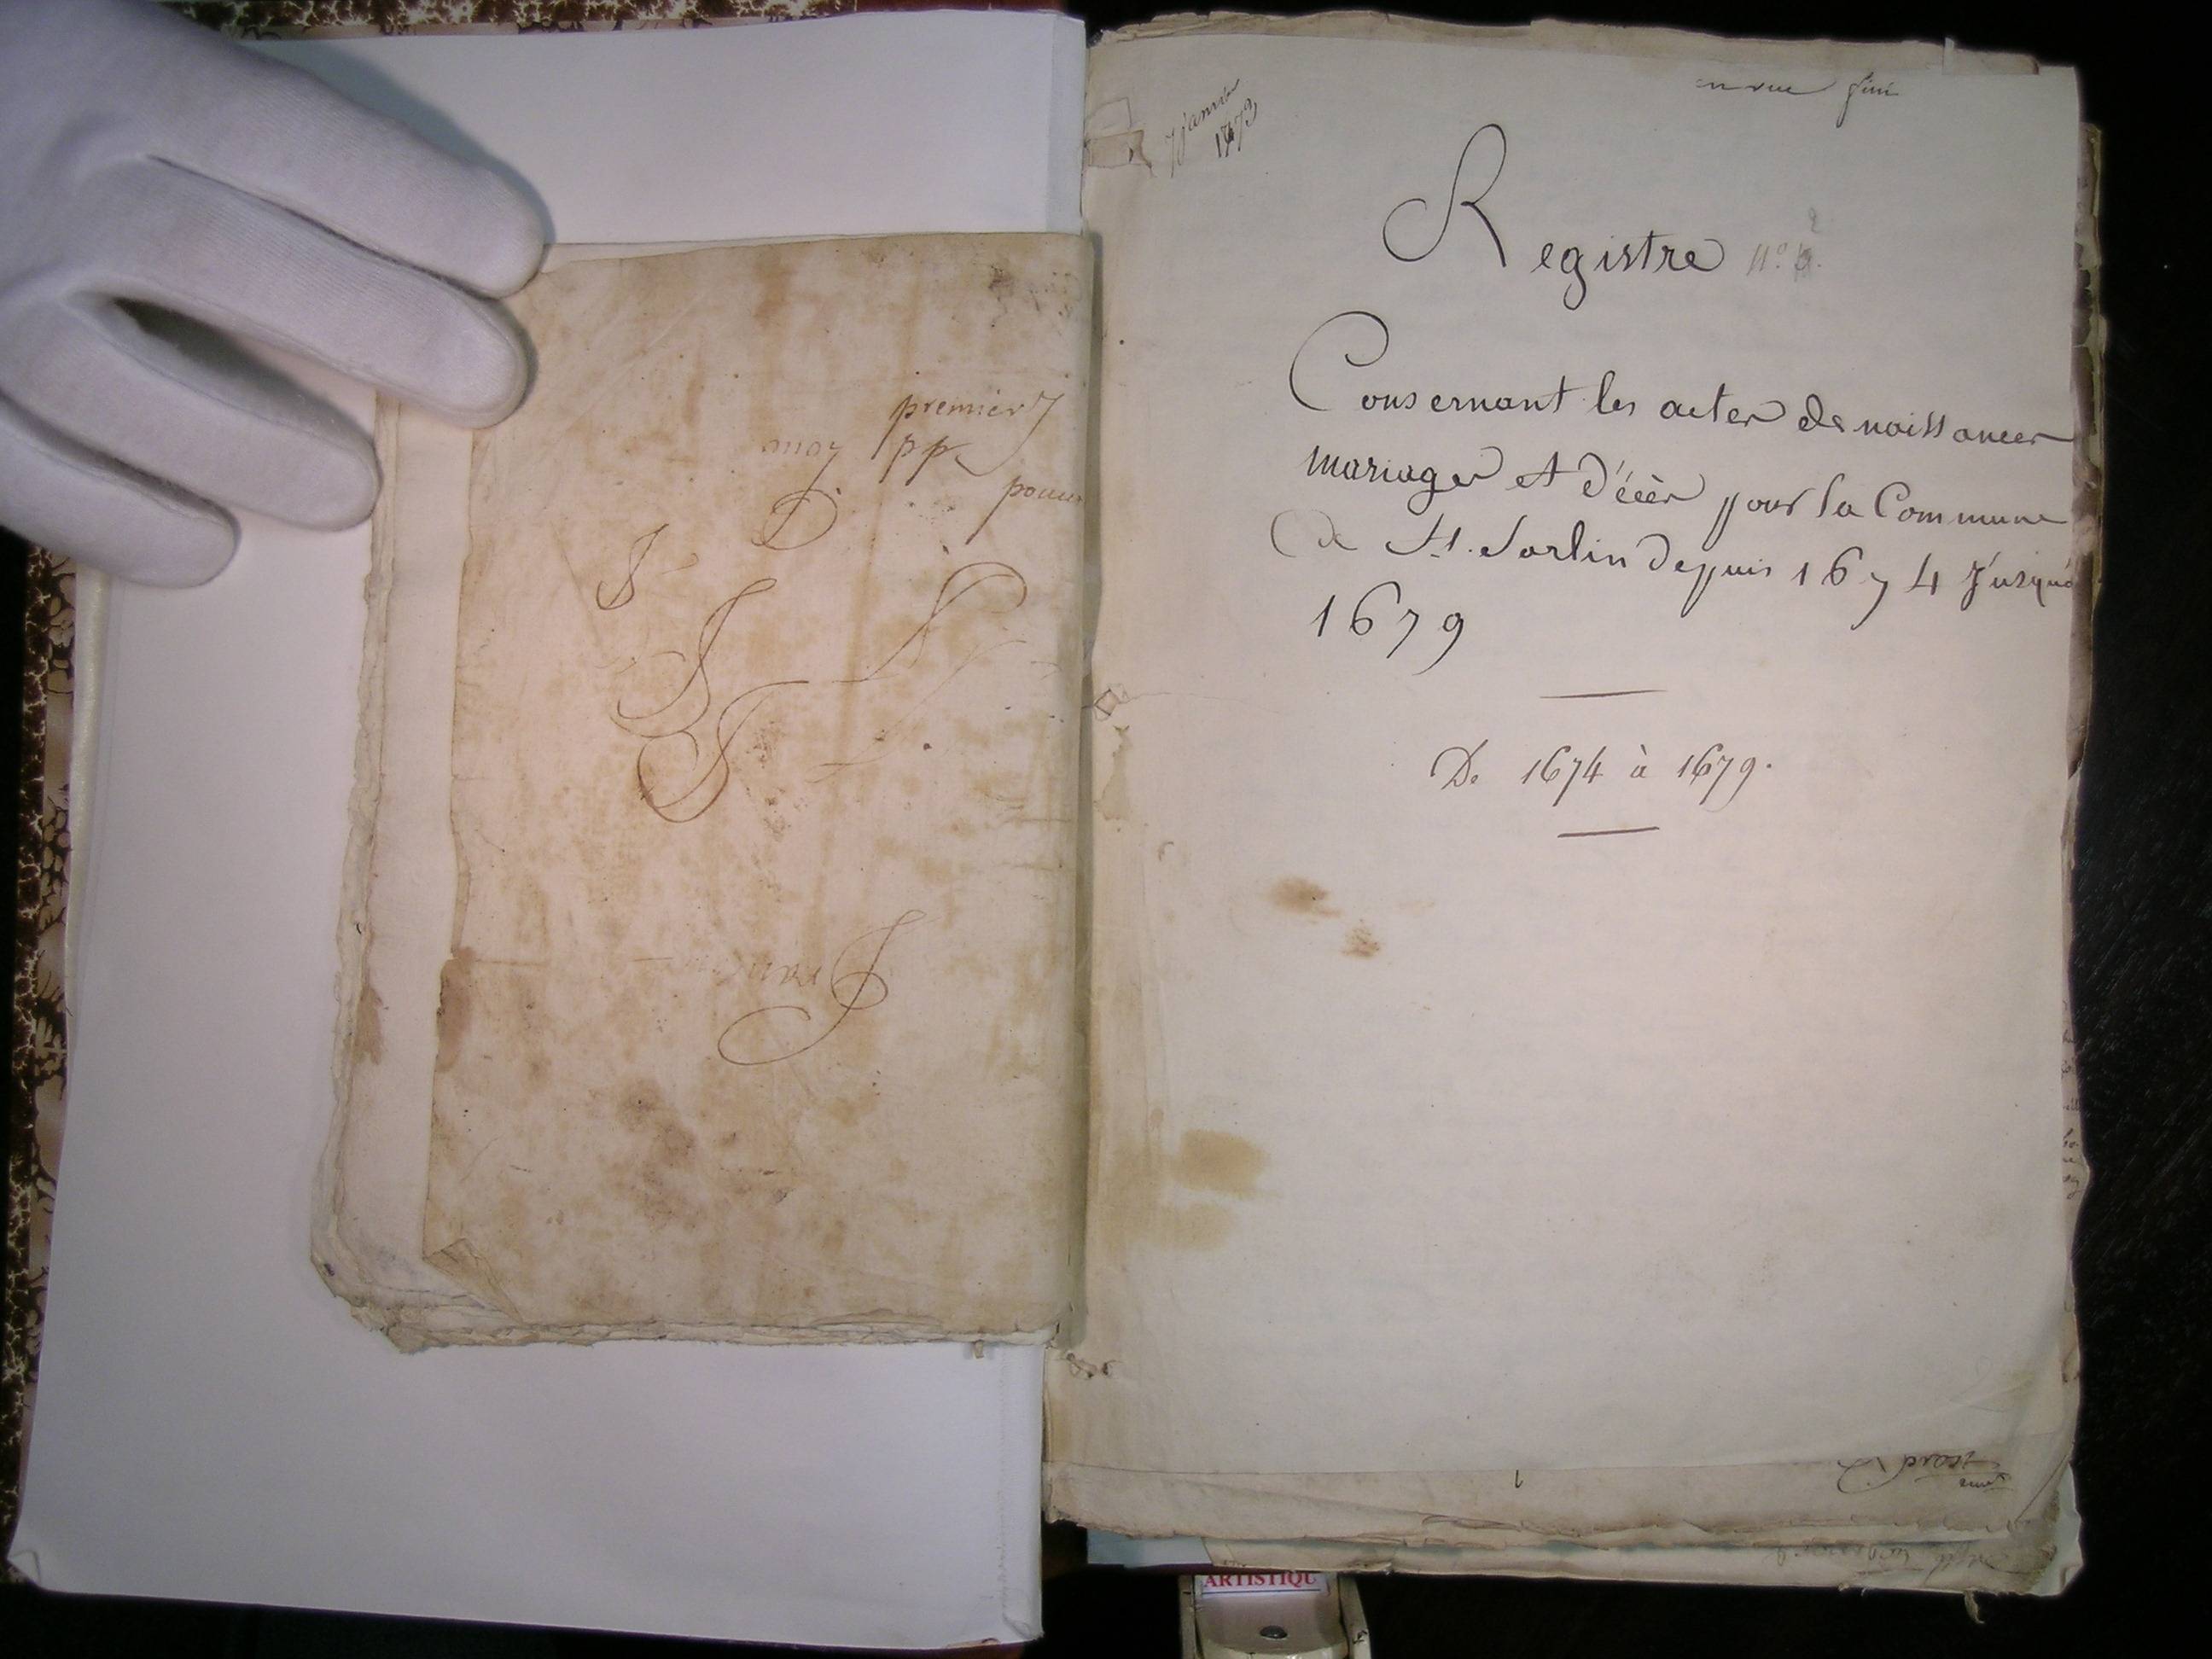 premier
moy pp
J
J
J
7 Janvier
1673
Registre n° 2
Consernant les actes de naissances
mariages et d'écès pour la Commune
de St. Sorlin depuis 1674 Jusqu'à
1679
De 1674 à 1679.
1
ARTISTIQU